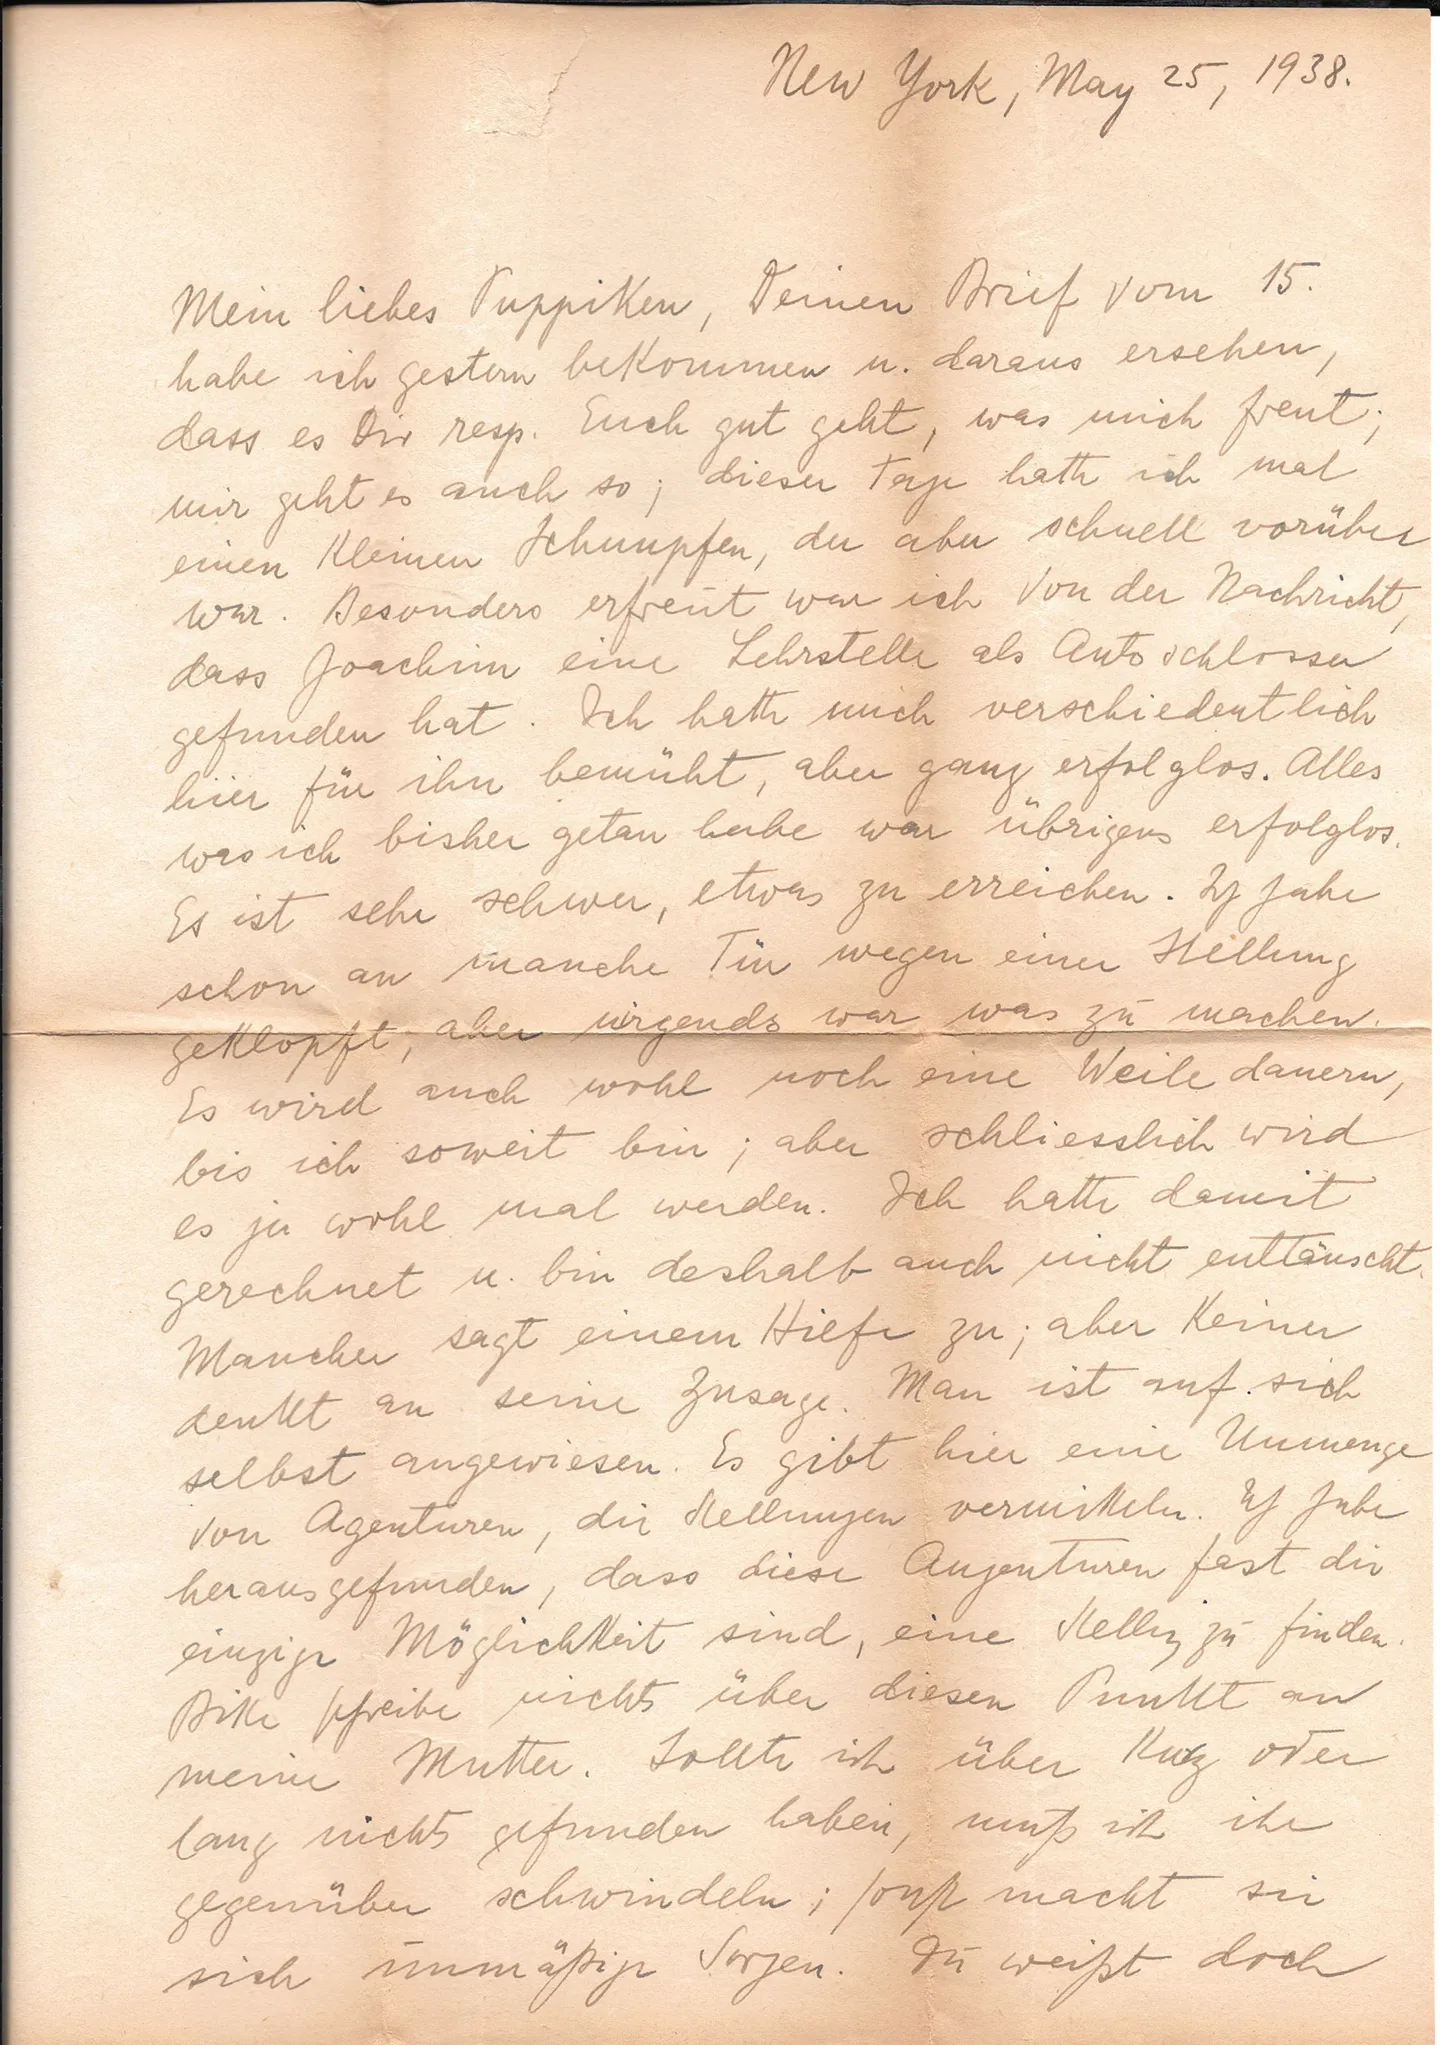 New York, May 25, 1938.
Mein liebes Puppiken, Deinen Brief vom 15.
habe ich gestern bekommen u. daraus ersehen,
dass es Dir resp. Euch gut geht, was mich freut;
mir geht es auch so; dieser Tage hatte ich mal
einen kleinen Schnupfen, der aber schnell vorüber
war. Besonders erfreut war ich von der Nachricht,
dass Joachim eine Lehrstelle als Autoschlosser
gefunden hat. Ich hatte mich verschiedentlich
hier für ihn bemüht, aber ganz erfolglos. Alles
was ich bisher getan habe war übrigens erfolglos.
Es ist sehr schwer, etwas zu erreichen. Ich habe
schon an manche Tür wegen einer Stellung
geklopft, aber nirgends war was zu machen.
Es wird auch wohl noch eine Weile dauern,
bis ich soweit bin; aber schliesslich wird
es ja wohl mal werden. Ich hatte damit
gerechnet u. bin deshalb auch nicht enttäuscht.
Mancher sagt einem Hilfe zu; aber keiner
denkt an seine Zusage. Man ist auf sich
selbst angewiesen. Es gibt hier eine Unmenge
von Agenturen, die Stellungen vermitteln. Ich habe
herausgefunden, dass diese Angenturen fast die
einzige Möglichkeit sind, eine Stellg zu finden.
Bitte schreibe nichts über diesen Punkt an
meine Mutter. Sollte ich über kurz oder
lang nichts gefunden haben, muß ich ihr
gegenüber schwindeln; sonst macht sie
sich unmäßige Sorgen. Du weißt doch